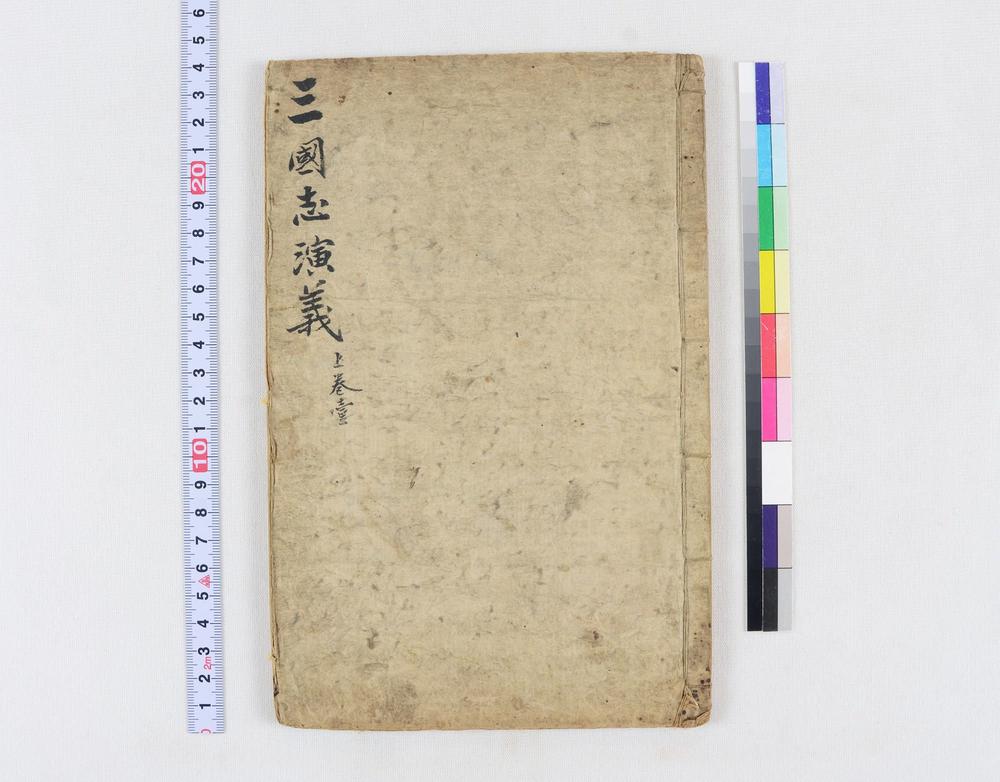 三國志演義
上卷壹
6
5
4
3
2
1
20
9
8
7
6
5
4
3
2
1
10
9
8
7
6
5
4
3
2m
2
1